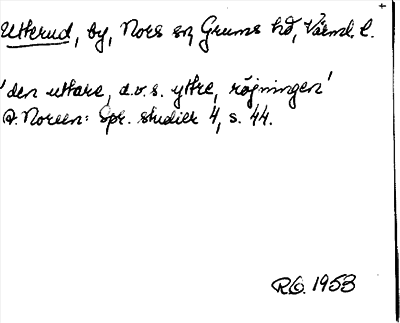 Utterud, by, Nors sn, Grums hd, Värml. l.
'den uttare, d.v.s. yttre, röjningen'
A. Noreen: Spr. studier 4, s. 44.
R.O. 1953